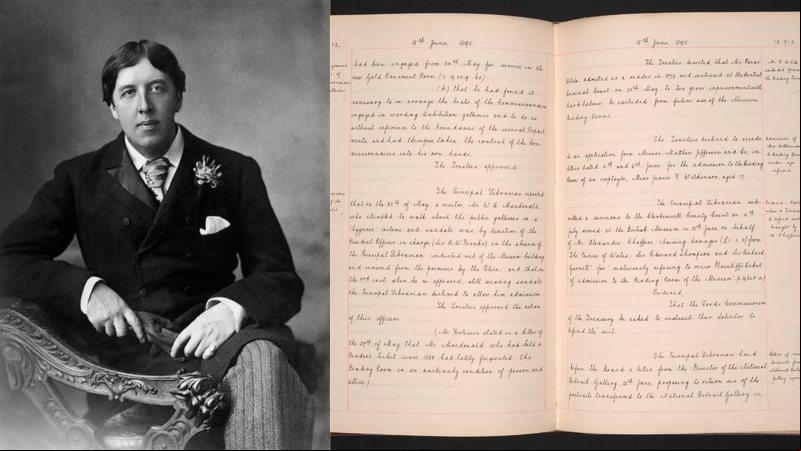 15th June, 1895
had been engaged from 20th May for service in the
new Gold Ornament Room (c. 1925 g. 60).
(b) that he had found it
necessary to re-arrange the beats of the Commissionaires
engaged in warding Exhibition galleries and to do so
without reference to the boundaries of the several Depart-
ments, and had therefore taken the control of the Com-
missionaires into his own hands.
The Trustees approved.
The Principal Librarian reported
that on the 25th of May, a visitor, Mr. W. A. Macdonald
who attempted to walk about the public galleries in a
"hygienic" costume and sandals, was, by direction of the
Resident Officer in charge (Sir A. W. Franks) in the absence of
the Principal Librarian conducted out of the Museum building
and removed from the premises by the Police; and that, on
the when he re-appeared, still wearing sandals
the Principal Librarian declined to allow him admission.
The Trustees approved the action
of their officers.
(Mr. Fortescue stated in a letter of
the 27th of May that Mr. Macdonald who had held a
reader's ticket since 1888 had lately frequented the
Reading Room in an uncleanly condition of person and
attire).
15th June, 1895
The Trustees directed that Mr. Oscar
Wilde, admitted as a reader in 1879 and sentenced at the Central
Criminal Court on 25th May to two years imprisonment with
hard labour, be excluded from future use of the Museum
Reading Room.
The Trustees declined to accede
to an application from Messrs Matthew Jefferson and Co, in
letters dated and 6th June, for the admission to the Reading
Room of an employée, Miss Jessie F. Wilkinson, aged 19.
The Principal Librarian sub-
mitted a summons to the Clerkenwell County Court on 2nd
July served at the British Museum on June, on behalf
of Mr. Alexander Chaffers, claiming damages (£1: 1: 0) from
"The Prince of Wales, Sir Edward Thompson and Sir Richard
Garnett" for "maliciously refusing to renew Plaintiff's ticket
of admission to the Reading Room of the Museum"
Ordered,
That the Lords Commissioners
of the Treasury be asked to instruct their Solicitor to
defend the suit.
The Principal Librarian laid
before the Board a letter from the Director of the National
Portrait Gallery, June, proposing to return six of the
portraits transferred to the National Portrait Gallery in